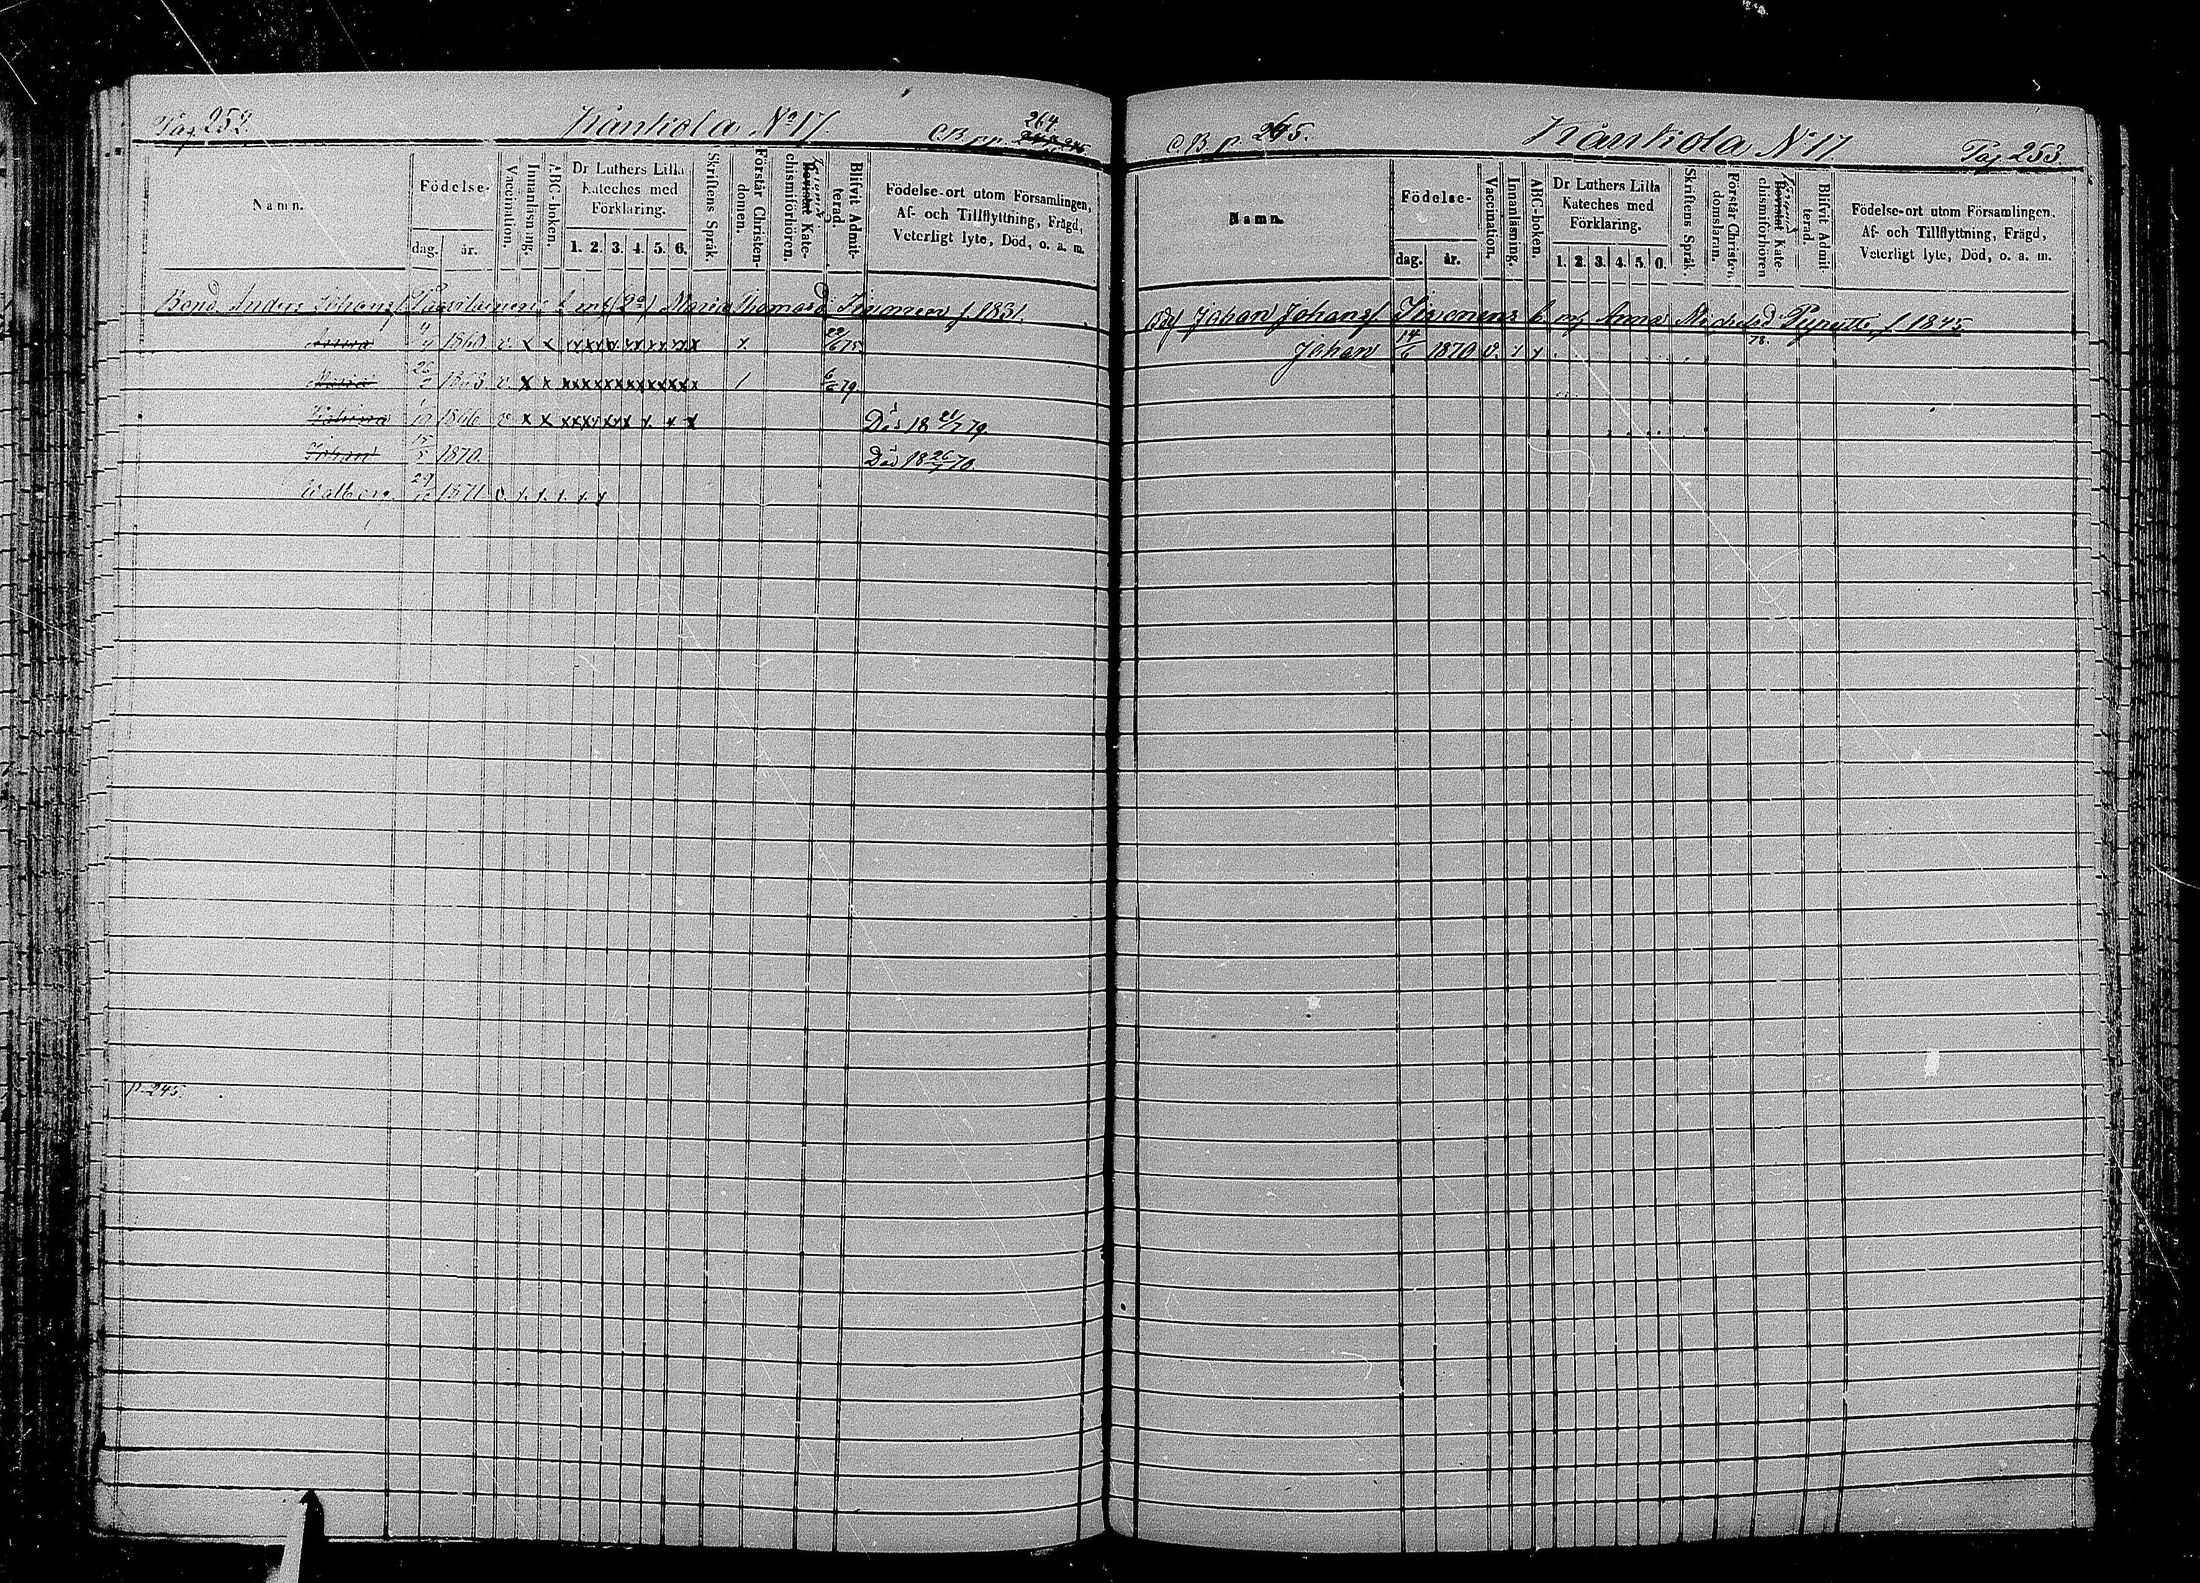 Pag 252.
Kankola No 17.
C.B. pp. 264. 245
Namn.
Födelse-
dag.
år.
Vaccination.
Innanläsning.
ABC-boken.
Dr Luthers Lilla Kateches med Förklaring.
1. 2. 3. 4. 5. 6.
Skriftens Språk.
Förstår Christendomen.
Bevistat Katechismiförhören.
Blifvit Admitterad.
Födelse-ort utom Församlingen,
Af- och Tillflyttning, Frägd,
Veterligt lyte, Död, o. a. m.
Bond. Anders Johans 2 m (2a) Maria Thomasd f. 1831.
1860. v. x x x 22/6 75
Maria 1863. v. x x xxxxxxxxxxxx / 6/6 79.
10 1866 v x x Död 18 21/7 79.
Johan 15/5 1870. Död 18 26/7 70.
Walborg. 29 1871 v. x. x. x. x. x
p. 245.
C.B. p. 265.
Kankola N 17.
Pag. 253.
Namn.
Födelse-
dag.
år.
Vaccination.
Innanläsning.
ABC-boken.
Dr Luthers Lilla Kateches med Förklaring.
1. 2. 3. 4. 5. 6.
Skriftens Språk.
Förstår Christendomsläran.
Bevistat Katechismiförhören
Blifvit Admitterad.
Födelse-ort utom Församlingen,
Af- och Tillflyttning, Frägd,
Veterligt lyte, Död, o. a. m.
Johan Johans b. m Anna Michelsd f. 1845
Johan 14/6 1870 v. x x 78.